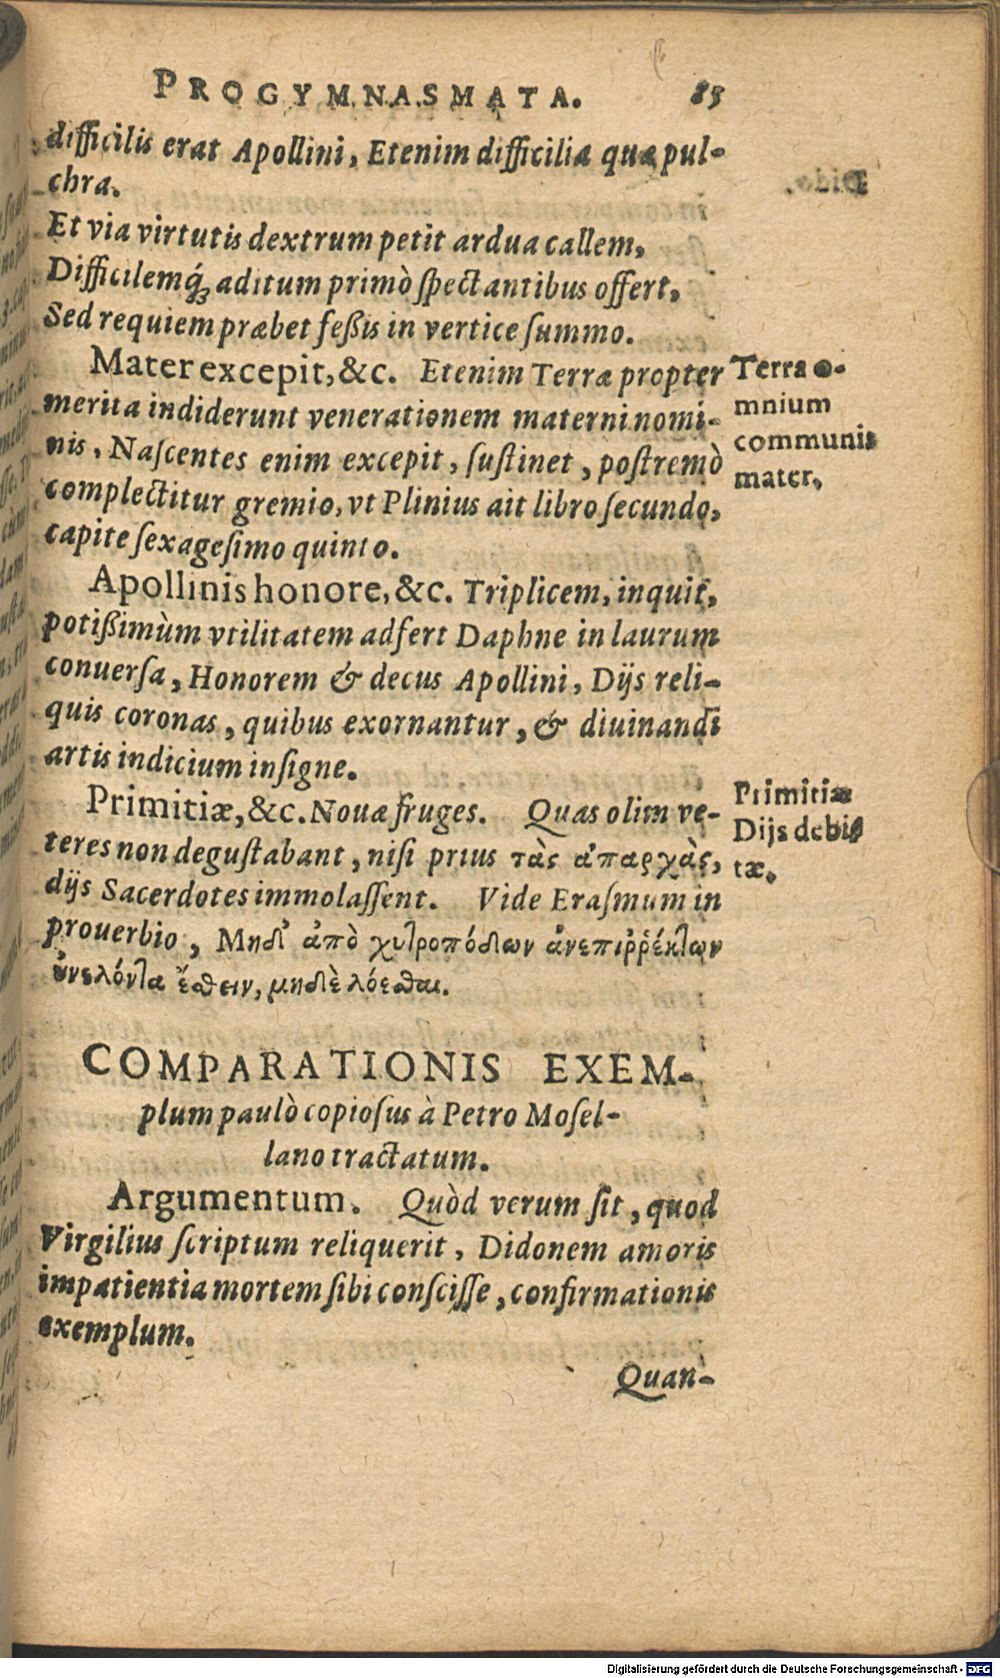 PROGYMNASMATA. 85
difficilis erat Apollini, Etenim difficilia quæ pul-
chra.
Et via virtutis dextrum petit ardua callem,
Difficilemq́ꝫ aditum primò ſpectantibus offert,
Sed requiem præbet feßis in vertice ſummo.
Mater excepit, &c. Etenim Terræ propter
merita indiderunt venerationem materni nomi-
nis, Naſcentes enim excepit, ſuſtinet, poſtremò
complectitur gremio, vt Plinius ait libro ſecundo,
capite ſexageſimo quinto.
Terra o-
mnium
communis
mater.
Apollinis honore, &c. Triplicem, inquit,
potißimùm vtilitatem adfert Daphne in laurum
conuerſa, Honorem & decus Apollini, Dijs reli-
quis coronas, quibus exornantur, & diuinandi
artis indicium inſigne.
Primitiæ, &c. Nouæ fruges. Quas olim ve-
teres non deguſtabant, niſi prius τὰς ἀπαρχὰς,
dijs Sacerdotes immolaſſent. Vide Eraſmum in
prouerbio, Μηδ' ἀπὸ χυτροπόδων ἀνεπιῤῥέκτων
ἀνελόντα ἔσθειν, μηδὲ λόεσθαι.
Primitiæ
Dijs debi-
tæ.
COMPARATIONIS EXEM-
plum paulò copioſius à Petro Moſel-
lano tractatum.
Argumentum. Quòd verum ſit, quod
Virgilius ſcriptum reliquerit, Didonem amoris
impatientia mortem ſibi conſciſſe, confirmationis
exemplum.
Quan-
Digitalisierung gefördert durch die Deutsche Forschungsgemeinschaft - DFG